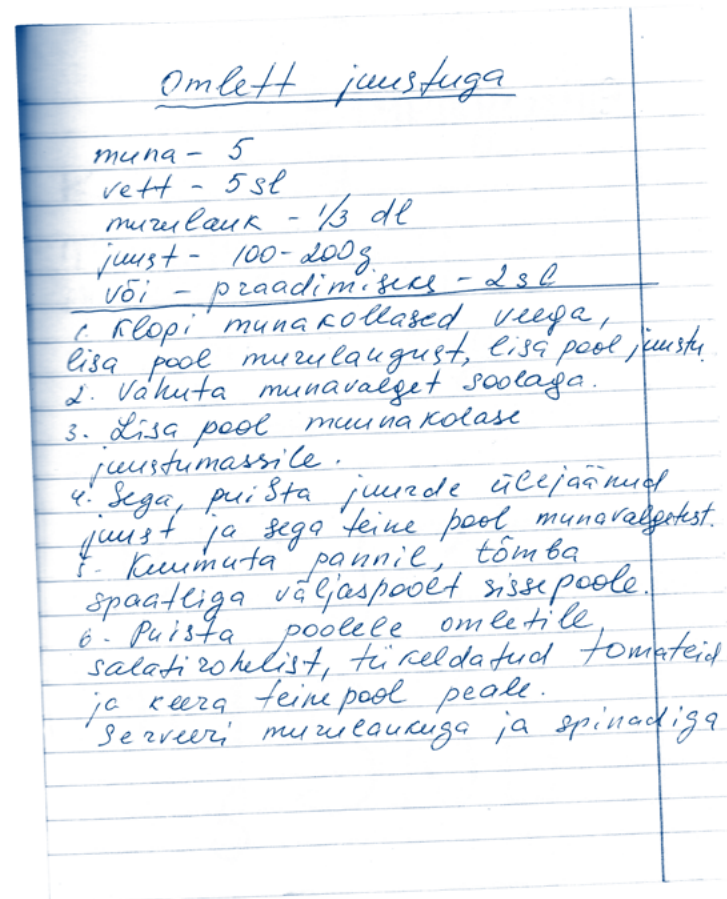 Omlett juustuga
muna - 5
vett - 5 sl
murulauk - 1/3 dl
juust - 100-200g
või - praadimiseks - 2 sl
1. Klopi munakollased veega,
lisa pool murulaugust, lisa pool juustu.
2. Vahusta munavalget soolaga.
3. Lisa pool muunakolase
juustumassile.
4. Sega, puista juurde ülejäänud
juust ja sega teine pool munavalgetest.
5. Kuumuta pannil, tõmba
spaatliga väljaspoolt sissepoole.
6. Puista poolele omletile,
salatirohelist, tükeldatud tomateid
ja keera teine pool peale.
Serveeri murulaukuga ja spinadiga